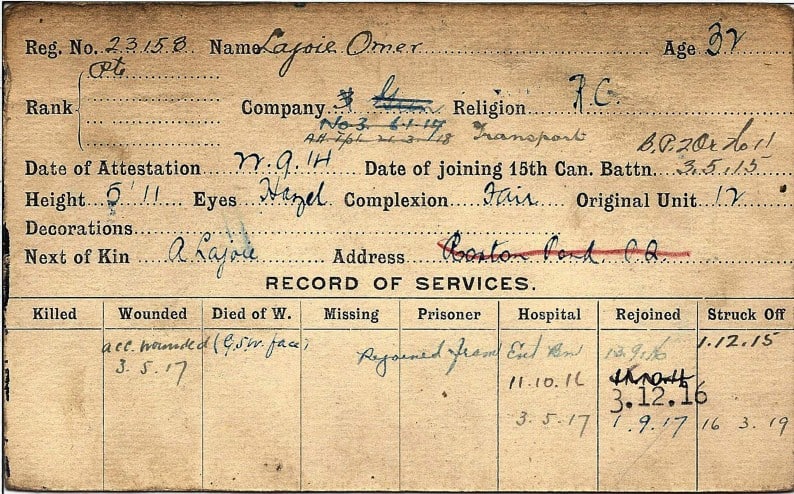 Reg. No. 23158 Name Lajoie Omer Age 32
Pte
Rank Company 3 Religion R.C.
No 3. 6.1.17
18 Transport
B.P. 2 Or 26 11
Date of Attestation 22.9.14 Date of joining 15th Can. Battn. 3.5.15
Height 5' 11 Eyes Hazel Complexion Fair Original Unit 12
Decorations
Next of Kin A Lajoie Address Boston Pond. P.Q.
RECORD OF SERVICES.
Killed Wounded Died of W. Missing Prisoner Hospital Rejoined Struck Off
acc. wounded (G.S.W. face) Rejoined from Ent Bn 13.9.16 1.12.15
3.5.17
11.10.16 11.10.16
3.12.16
3.5.17 1.9.17 16 3.19